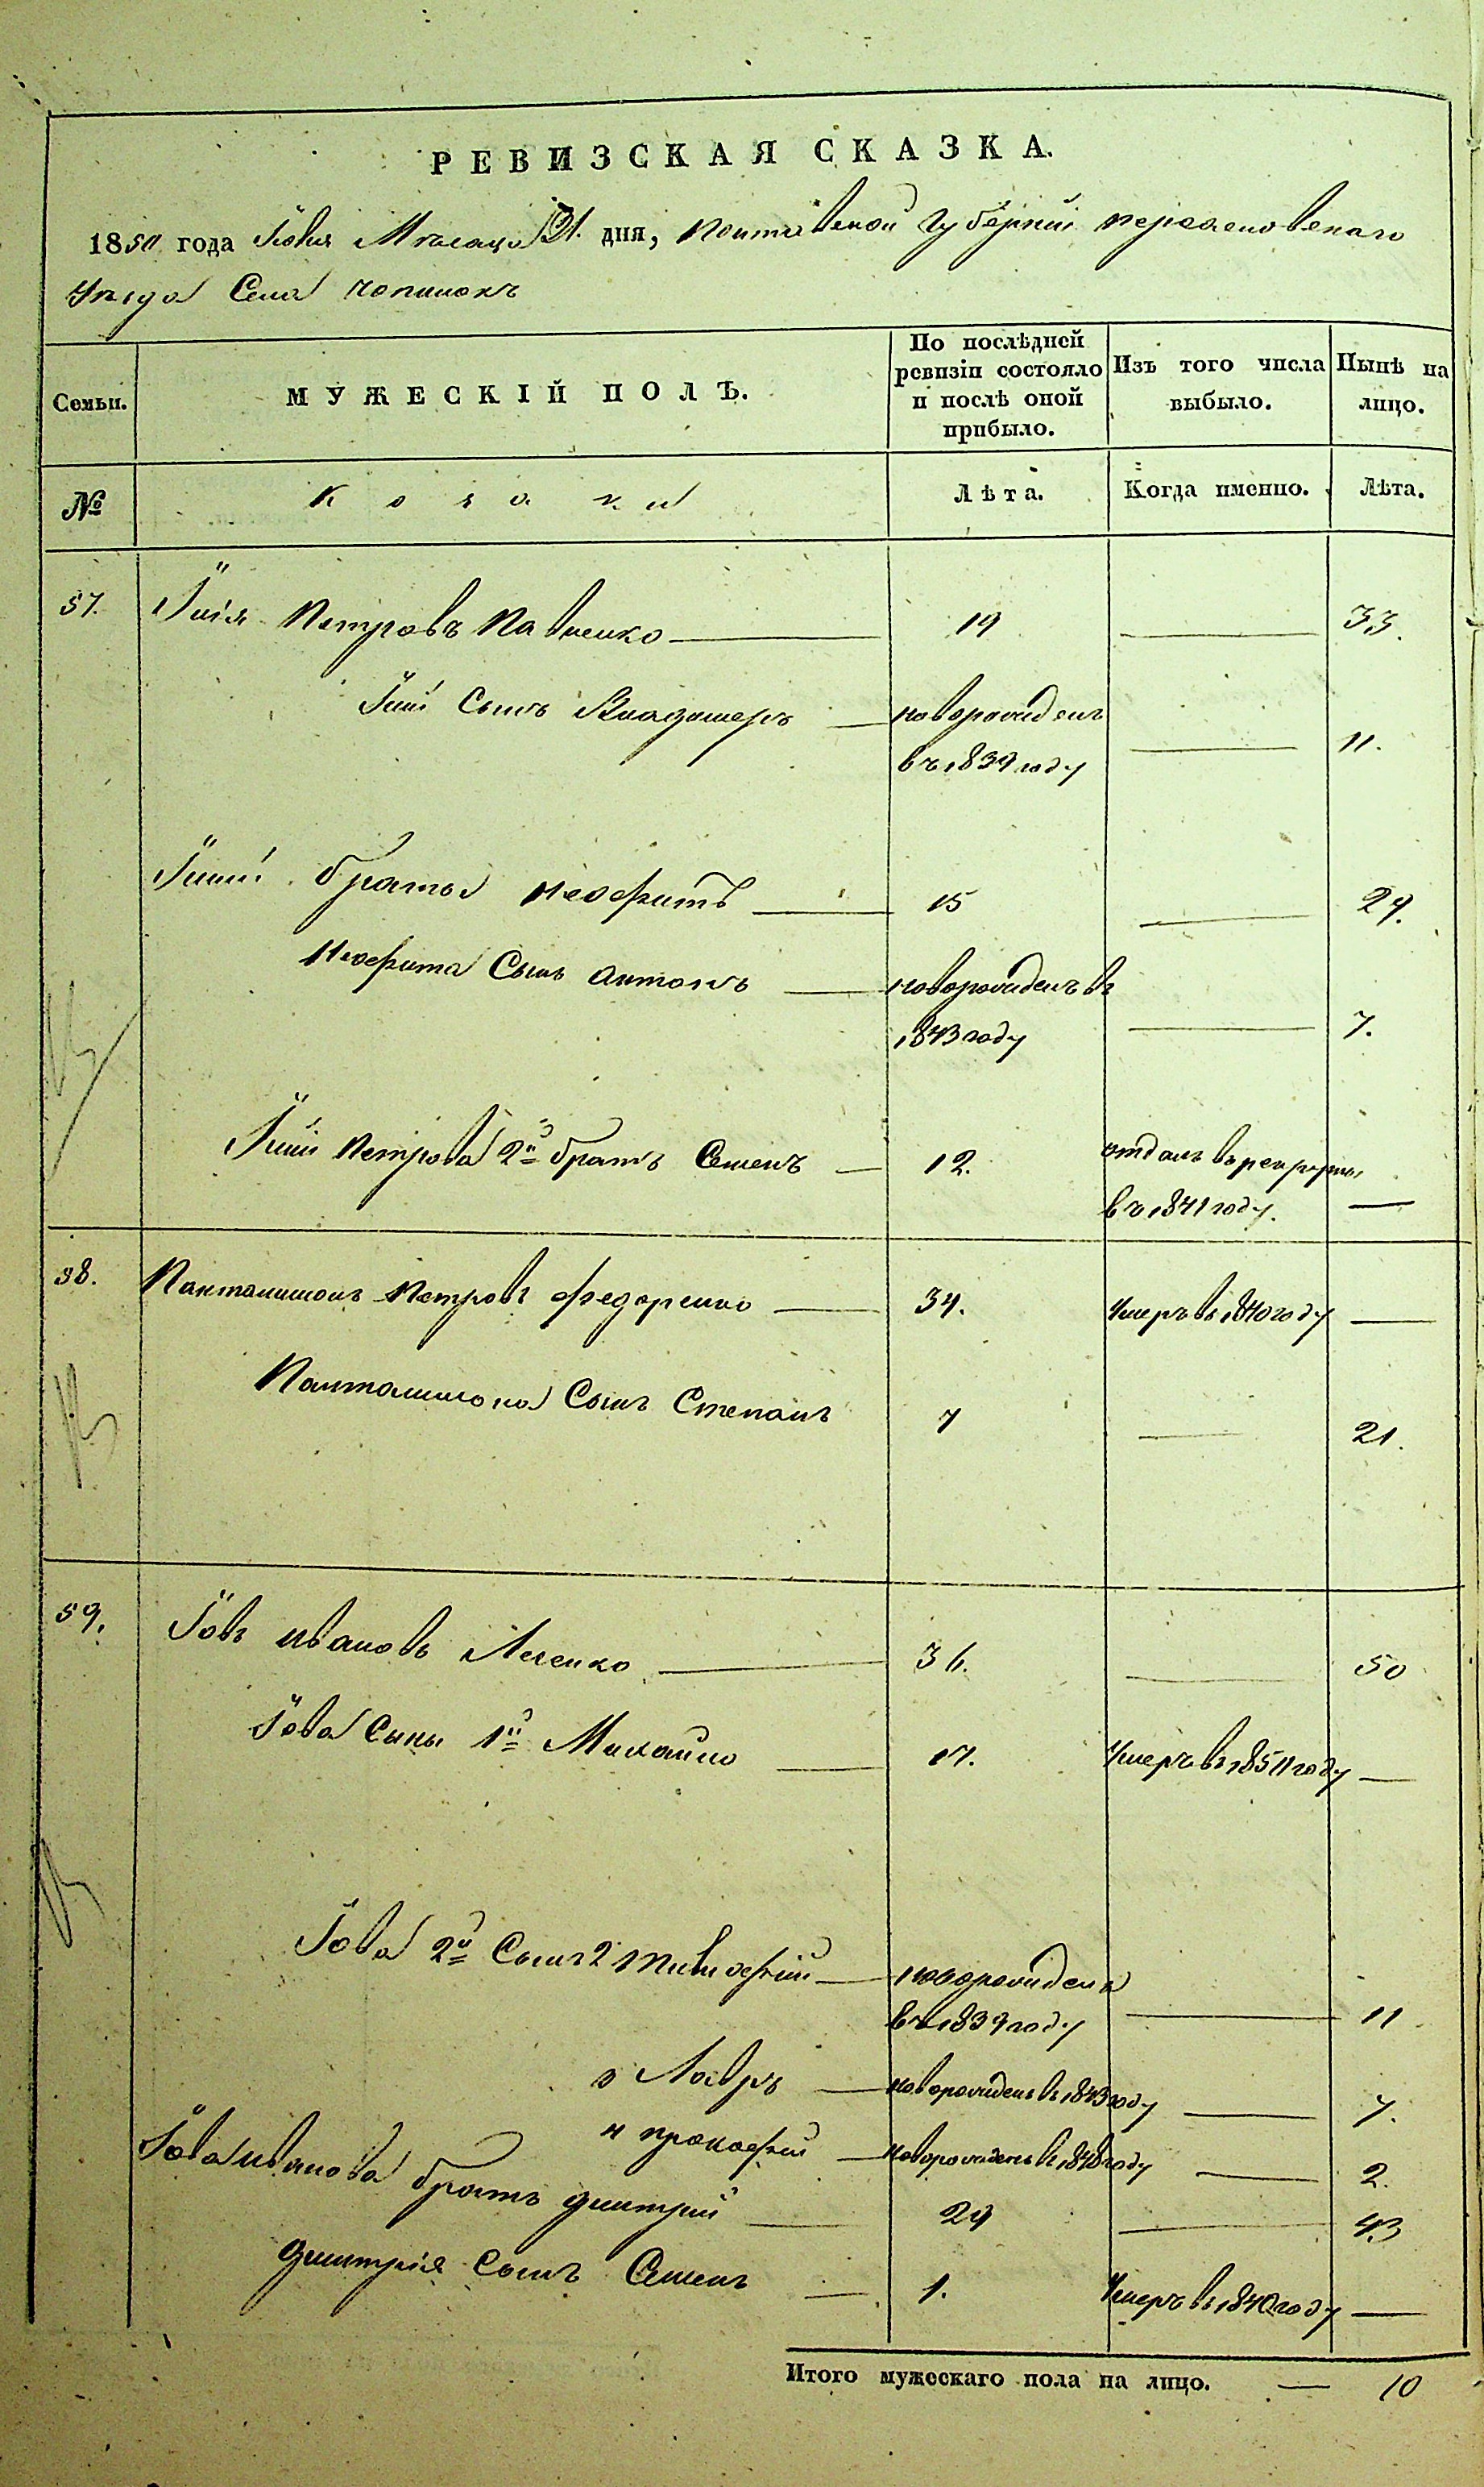 РЕВИЗСКАЯ СКАЗКА.
1850 года Июня Месяца 21. дня, Полтавской Губерніи переяславскаго
Уезда Села
Семьи.
МУЖЕСКІЙ ПОЛЪ.
По послѣдней ревизіи состояло и послѣ оной прибыло.
Изъ того числа выбыло.
Нынѣ на лицо.
№
Козаки
Лѣта.
Когда именно.
Лѣта.
57. Илія Петровъ Павленко 19 33.
Иліи Сынъ Владимеръ новорожденъ
въ 1839 году 11.
Иліи братья Неофитъ 15 29.
Неофита Сынъ Антонъ новорожденъ въ
1843 году 7.
Иліи Петрова 2й братъ Семенъ 12. отданъ въ рекруты
въ 1841 году.
58. Панталимонъ Петровъ Федоренко 34. Умеръ въ 1840 году
Панталимона Сынъ Степанъ 7 21.
59. Іовъ Ивановъ 36. 50
Іова Сыны 1й Михайло 17. Умеръ въ 1850 году
Іова 2й Сынъ 2 новорожденъ
въ 1839 году 11
3 Лавръ новорожденъ въ 1843 году 7.
4 прокофій новорожденъ въ 1848 году 2.
Іова Иванова братъ Дмитрій 29 43
Дмитрія Сынъ Семенъ 1. Умеръ въ 1840 году
Итого мужескаго пола на лицо. — 10